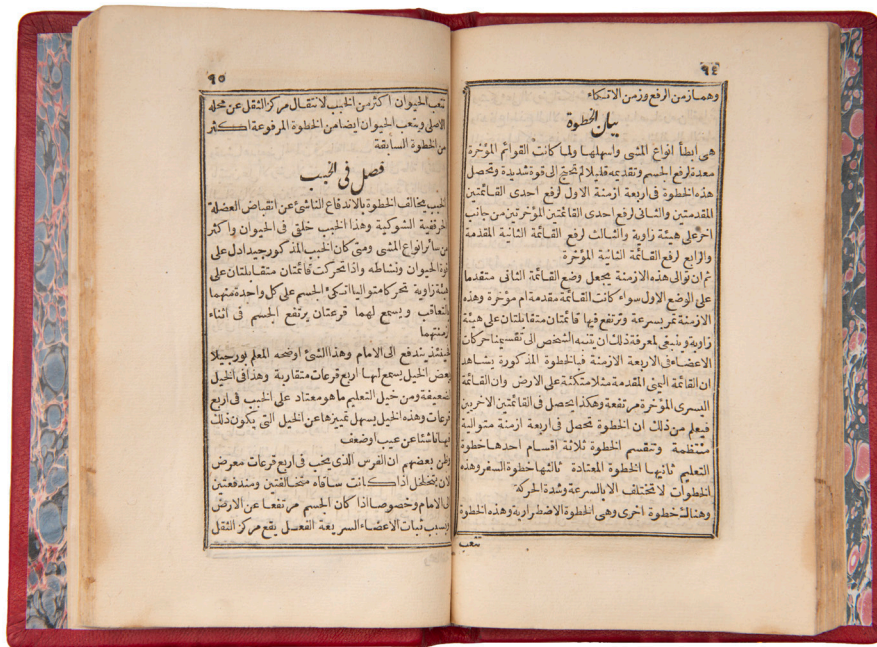 ٩٤
وهما زمن الرفع وزمن الاتكاء
بيان الخطوة
هى ابطأ انواع المشى واسهلها ولما كانت القوائم المؤخرة
معدة لرفع الجسم وتقديمه قليلا لم تحتج الى قوة شديدة وتحصل
هذه الخطوة فى اربعة ازمنة الاول لرفع احدى القائمتين
المقدمتين والثانى لرفع احدى القائمتين المؤخرتين من جانب
اخر على هيئة زاوية والثالث لرفع القائمة الثانية المقدمة
والرابع لرفع القائمة الثانية المؤخرة
ثم ان توالى هذه الازمنة يجعل وضع القائمة الثانى متقدما
على الوضع الاول سواء كانت القائمة مقدمة ام مؤخرة وهذه
الازمنة تمر بسرعة وترتفع فيها قائمتان متقابلتان على هيئة
زاوية وينبغى لمعرفة ذلك ان يتنبه الشخص الى تقسيمنا حركات
الاعضاء فى الاربعة الازمنة فالخطوة المذكورة يشاهد
ان القائمة اليمنى المقدمة مثلا متكئة على الارض وان القائمة
اليسرى المؤخرة مرتفعة وهكذا يحصل فى القائمتين الاخريين
فيعلم من ذلك ان الخطوة تحصل فى اربعة ازمنة متوالية
منتظمة وتنقسم الخطوة ثلاثة اقسام احدها خطوة
التعليم ثانيها الخطوة المعتادة ثالثها خطوة السفر وهذه
الخطوات لا تختلف الا بالسرعة وشدة الحركة
وهناك خطوة اخرى وهى الخطوة الاضطرارية وهذه الخطوة
تتعب
٩٥
تتعب الحيوان اكثر من الخبب لانتقال مركز الثقل عن محله
الاصلى ويتعب الحيوان ايضا من الخطوة المرفوعة اكثر
من الخطوة السابقة
فصل فى الخبب
الخبب يخالف الخطوة بالاندفاع الناشئ عن انقباض العضلة
الحرقفية الشوكية وهذا الخبب خلقى فى الحيوان واكثر
من سائر انواع المشى ومتى كان الخبب المذكور جيدا دل على
قوة الحيوان ونشاطه واذا تحركت قائمتان متقابلتان على
هيئة زاوية تحركا متواليا اتكئ الجسم على كل واحدة منهما
بالتعاقب ويسمع لهما قرعتان يرتفع الجسم فى اثناء
ازمنتهما
فحينئذ يندفع الى الامام وهذا الشئ اوضحه المعلم بورجيلا
وبعض الخيل يسمع لها اربع قرعات متقاربة وهذا فى الخيل
الضعيفة ومن خيل التعليم ما هو معتاد على الخبب فى اربع
قرعات وهذه الخيل يسهل تمييزها عن الخيل التى يكون ذلك
فيها ناشئا عن عيب او ضعف
وظن بعضهم ان الفرس الذى يخب فى اربع قرعات معرض
لان يتخلخل اذا كانت ساقاه متخالفتين ومندفعتين
الى الامام وخصوصا اذا كان الجسم مرتفعا عن الارض
وبسبب ثبات الاعضاء السريعة الفعل يقع مركز الثقل